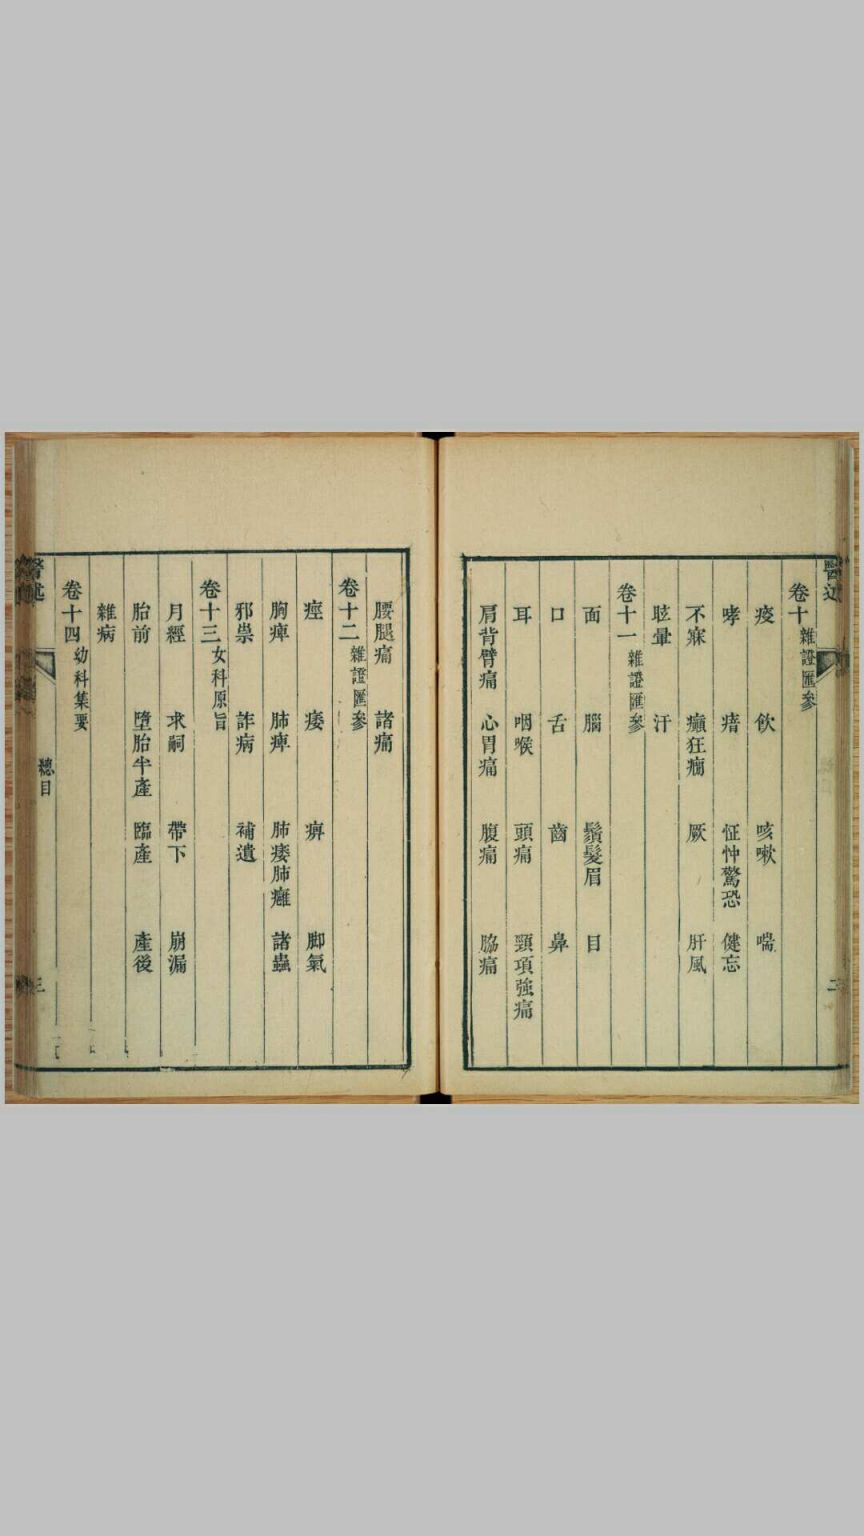 醫述
卷十 雜證匯參
痰 飲 咳嗽 喘
哮 瘖 怔忡驚恐 健忘
不寐 癲狂癇 厥 肝風
眩暈 汗
卷十一 雜證匯參
面 腦 鬚髮眉 目
口 舌 齒 鼻
耳 咽喉 頭痛 頸項強痛
肩背臂痛 心胃痛 腹痛 脇痛
二
腰腿痛 諸痛
卷十二 雜證匯參
痙 痿 痹 脚氣
胸痺 肺痺 肺痿肺癰 諸蟲
邪祟 詐病 補遺
卷十三 女科原旨
月經 求嗣 帶下 崩漏
胎前 墮胎半產 臨產 產後
雜病
卷十四 幼科集要
醫述 總目 三